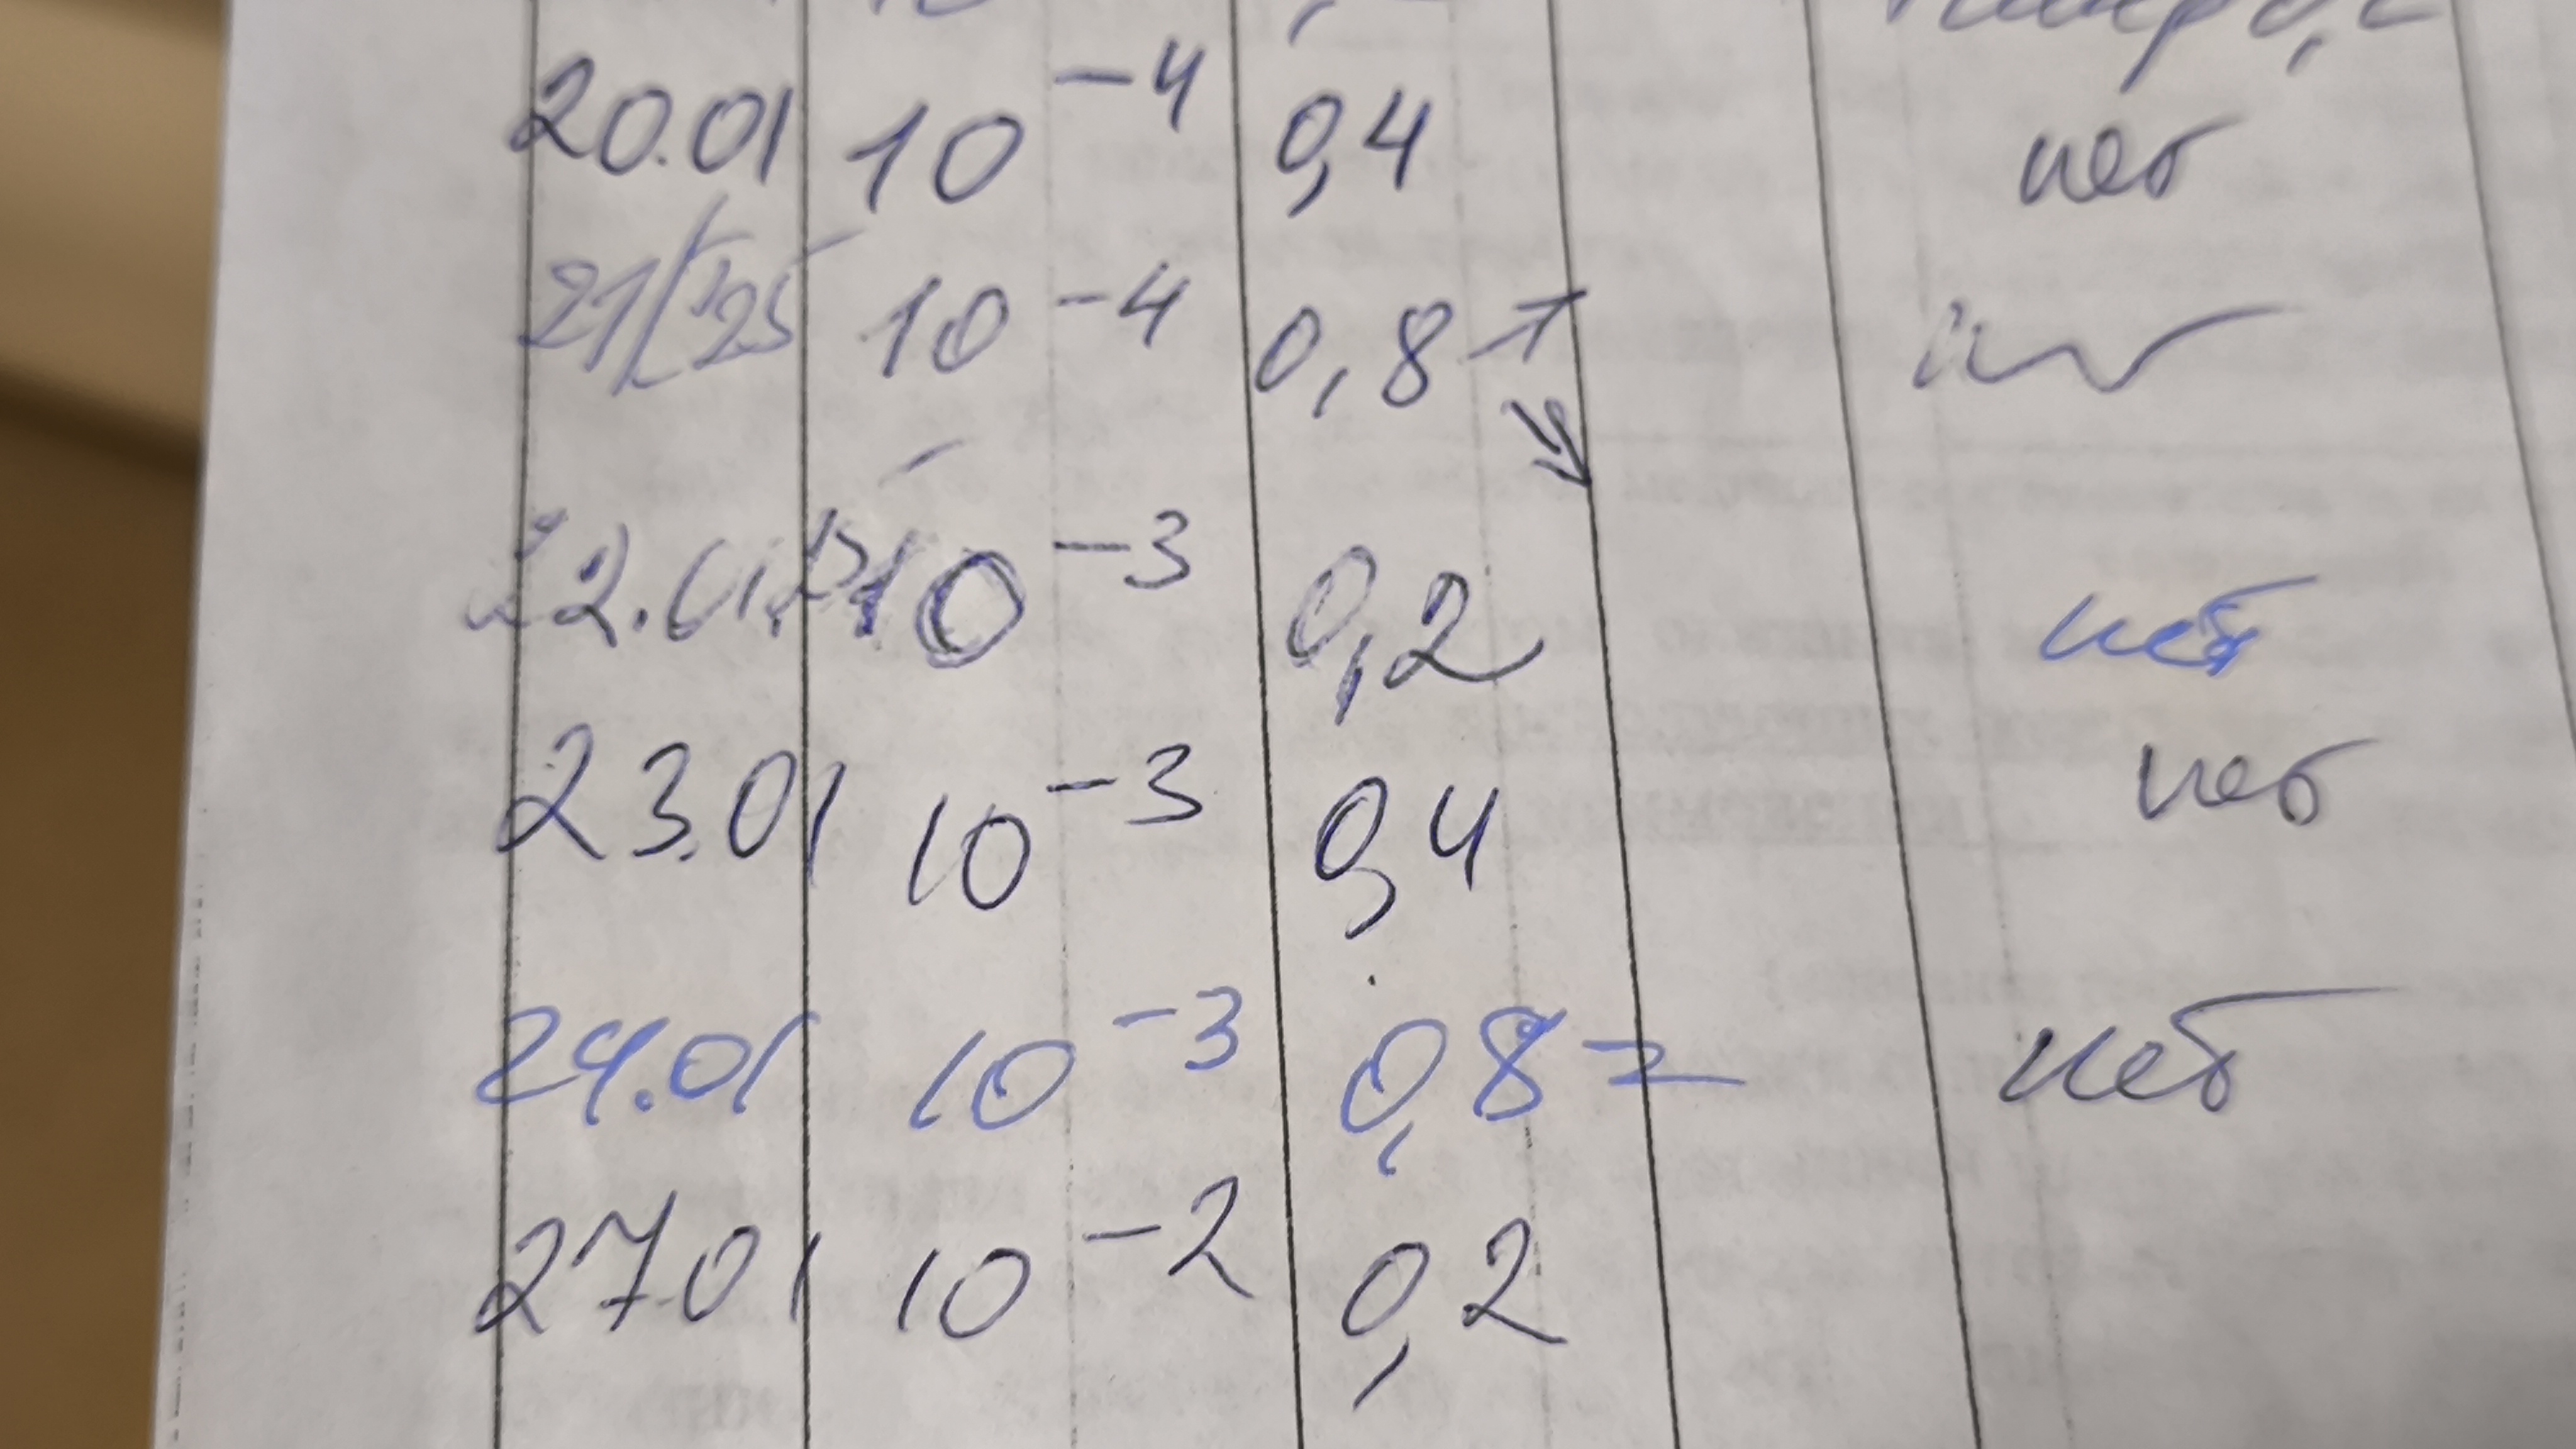 20.01 10⁻⁴ 0,4 нет
21/ 25 10⁻⁴ 0,8
22.01. 10⁻³ 0,2 нет
23.01 10⁻³ 0,4 нет
24.01 10⁻³ 0,8 нет
27.01 10⁻² 0,2